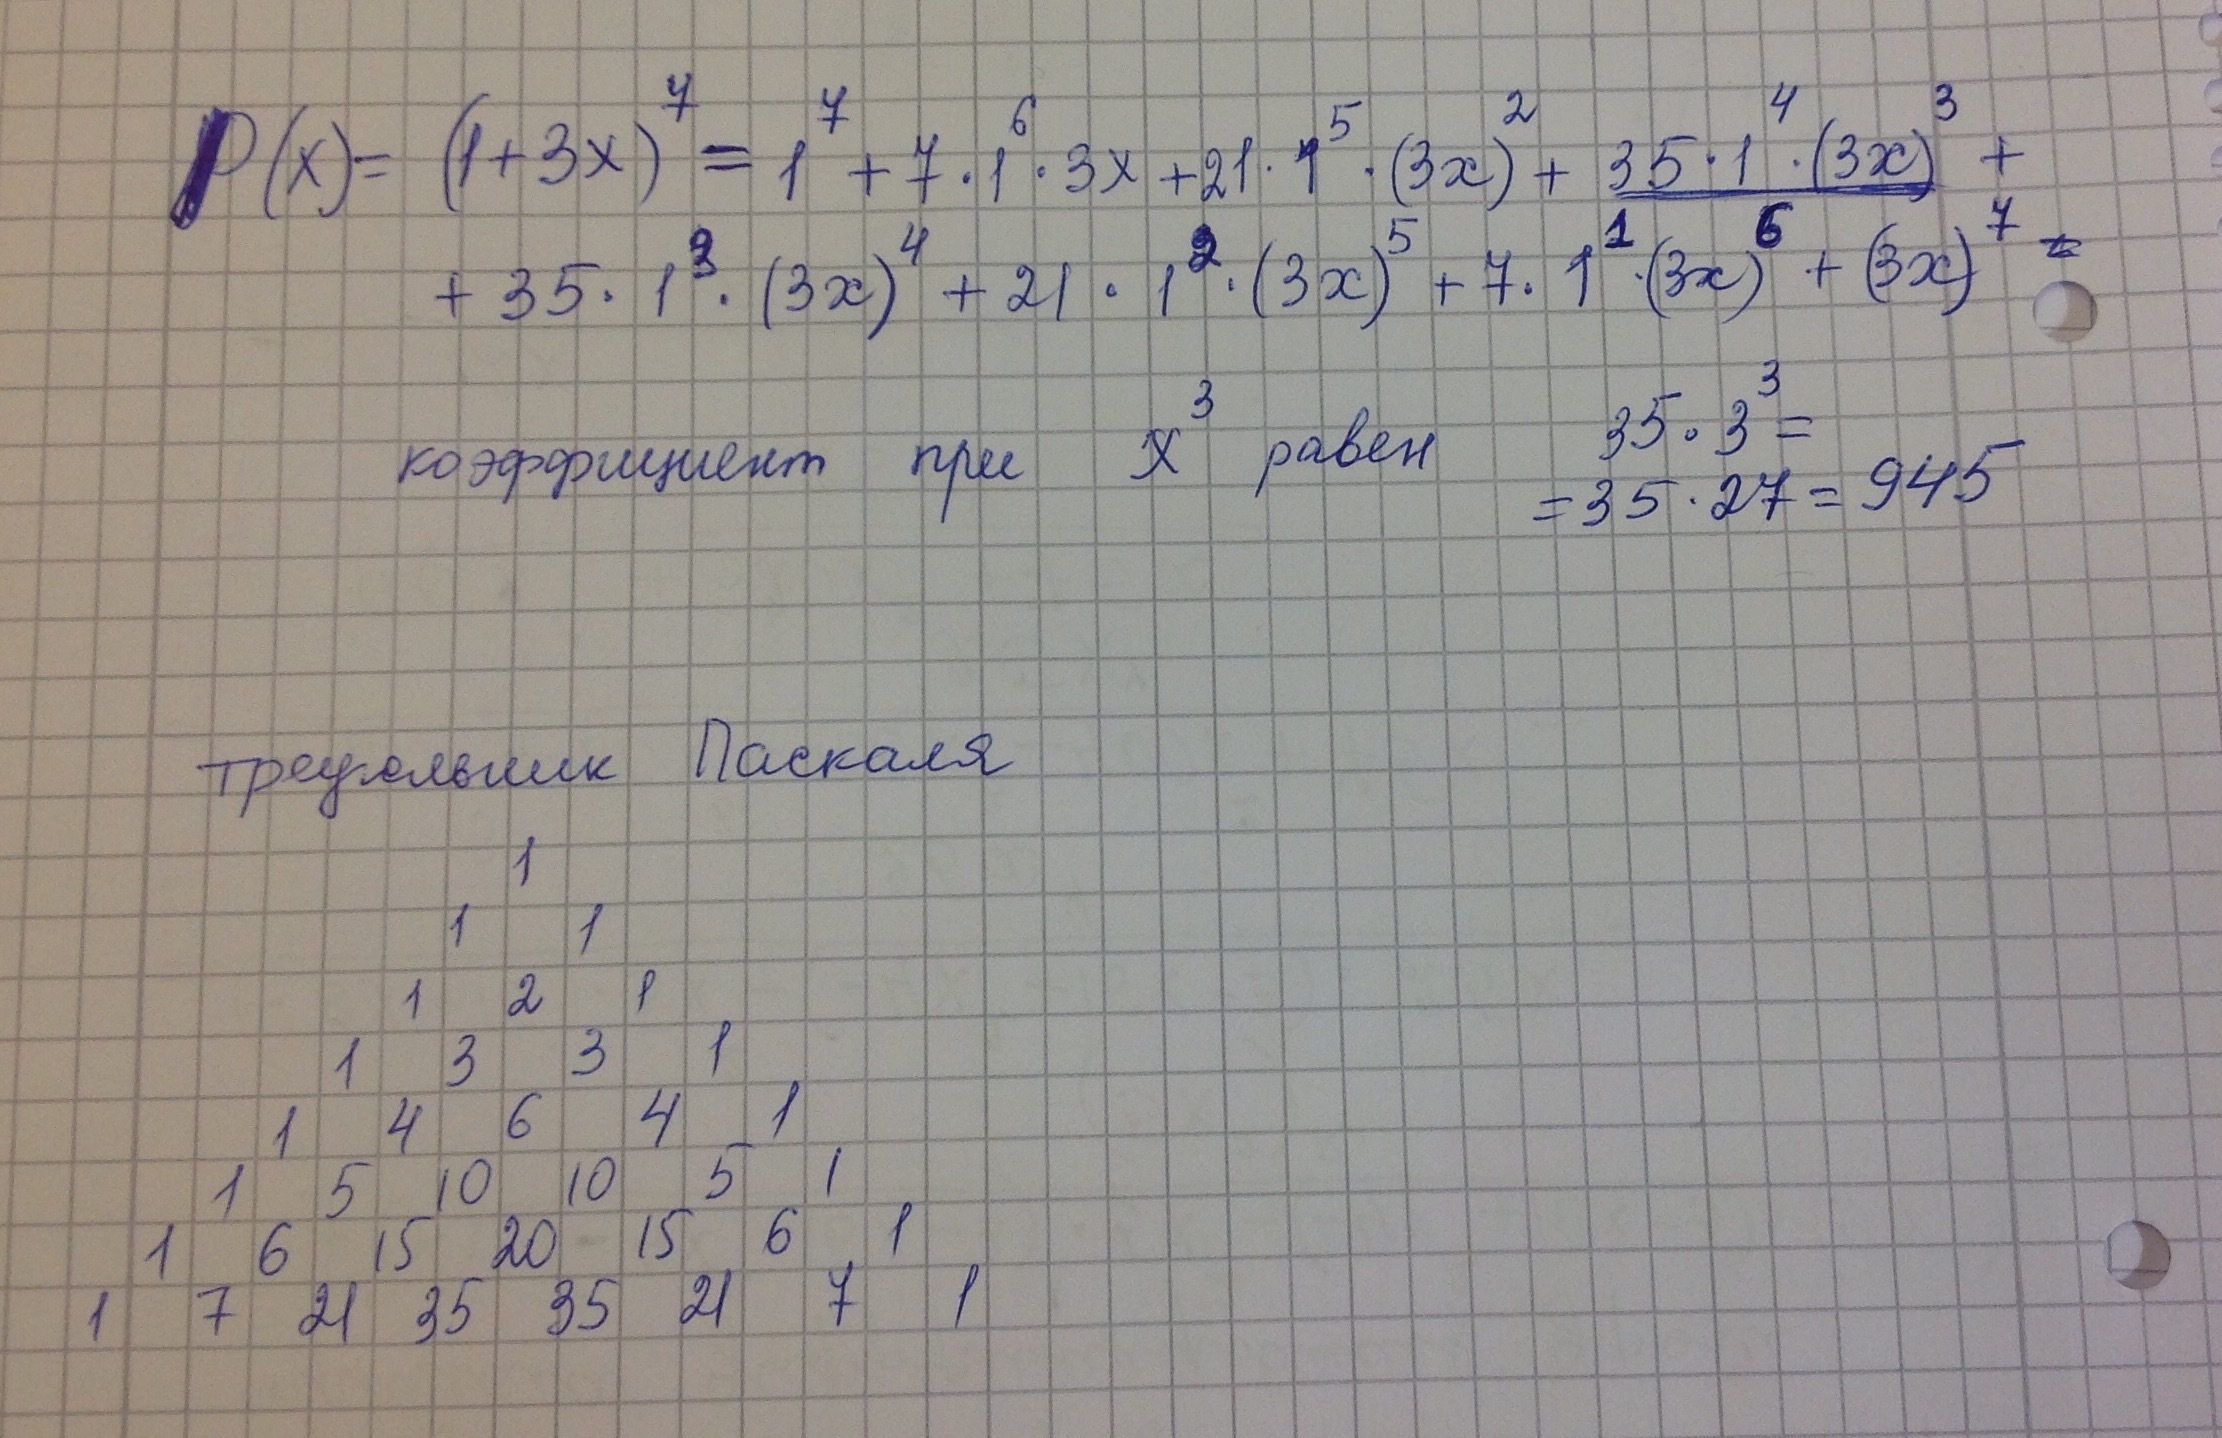 P(x) = (1+3x)⁷ = 1⁷ + 7·1⁶·3x + 21·1⁵·(3x)² + 35·1⁴·(3x)³ +
+ 35·1³·(3x)⁴ + 21·1²·(3x)⁵ + 7·1¹·(3x)⁶ + (3x)⁷ =
коэффициент при x³ равен 35·3³ =
= 35·27 = 945
треугольник Паскаля
1
1 1
1 2 1
1 3 3 1
1 4 6 4 1
1 5 10 10 5 1
1 6 15 20 15 6 1
1 7 21 35 35 21 7 1